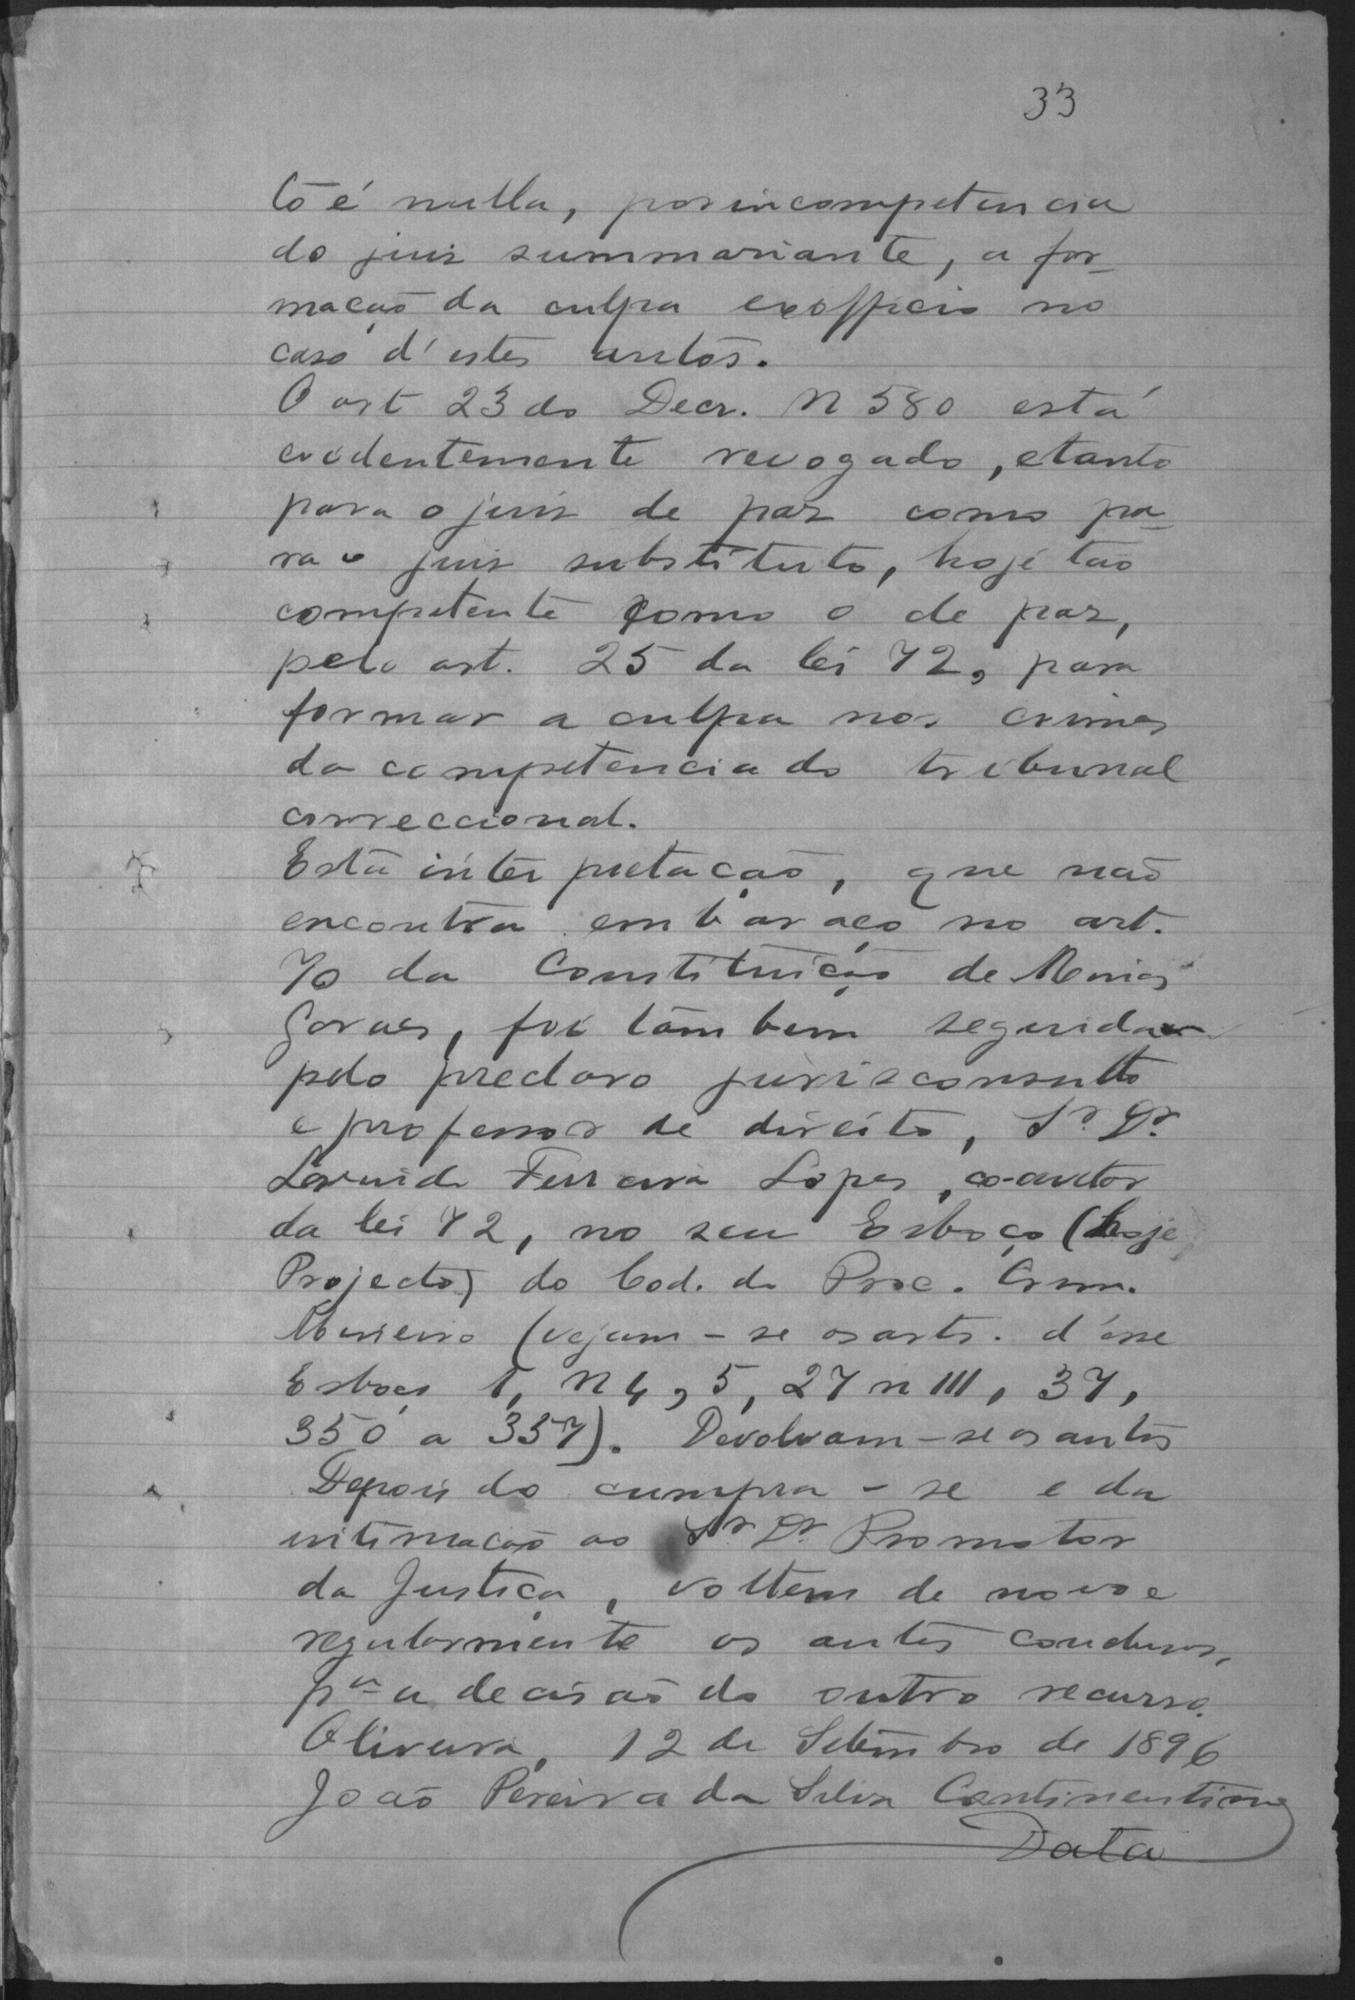 33
to é nulla, por incompetencia
do juiz summariante, a for-
mação da culpa exofficio no
caso d'estes autos.
O art 23 do Decr. N 580 está
evidentemente revogado, e tanto
para o juiz de paz como pa-
ra o juiz substituto, hoje tão
competente como o de paz,
pelo art. 25 da lei 72, para
formar a culpa nos crimes
da competencia do tribunal
correccional.
Esta interpretação, que não
encontra embaraço no art.
70 da Constituição de Minas
Geraes, foi tambem seguida
pelo preclaro jurisconsulto
e professor de direito, Sr. Dr.
Levindo Ferreira Lopes, co-autor
da lei 72, no seu Esboço (hoje
Projecto) do Cod. do Proc. Crim.
Mineiro (vejam-se os arts. d'esse
Esboço 1, N 4, 5, 27 n III, 37,
350 a 357). Devolvam-se os autos
Depois do cumpra-se e da
intimação ao Sr. Dr. Promotor
da Justiça, voltem de novo e
regularmente os autos conclusos,
pa a decisão do outro recurso.
Oliveira, 12 de Setembro de 1896
João Pereira da Silva Continentino
Data